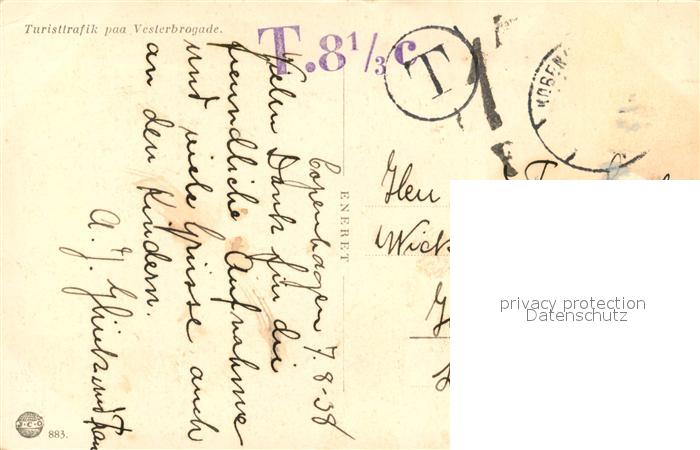 Turisttrafik paa Vesterbrogade.
T.8 1/3 c
T
KOBEN
Copenhagen 7.8-38
Vielen Dank für die
freundliche Aufnahme
und viele Grüsse auch
an den Kindern.
A. J.
ENERET
Herr
Wick
privacy protection
Datenschutz
J.C.O
883.